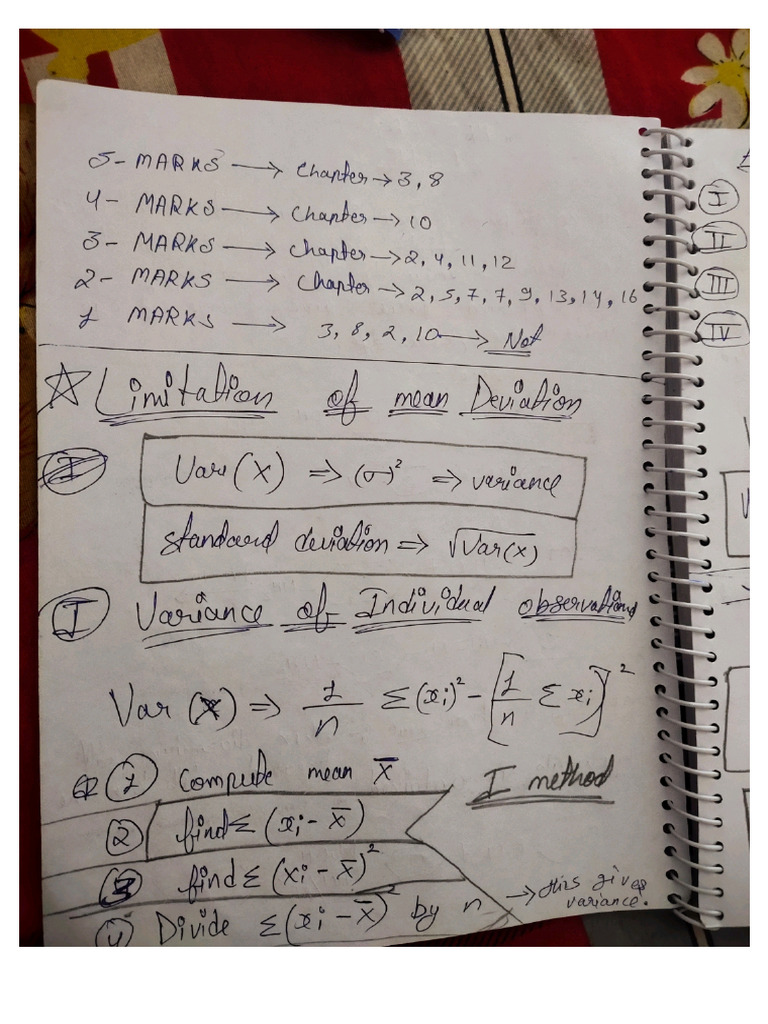 5- MARKS → Chapter → 3, 8
4- MARKS → Chapter → 10
3- MARKS → Chapter → 2, 4, 11, 12
2- MARKS → Chapter → 2, 5, 7, 7, 9, 13, 14, 16
1 MARKS → 3, 8, 2, 10 → Not
☆ Limitation of mean Deviation
Var(X) ⇒ (σ)² ⇒ variance
standard deviation ⇒ √Var(x)
I Variance of Individual observations
Var (X) ⇒ 1/n Σ(xi)² - [1/n Σxi]²
1 Compute mean x̄
I method
2 find Σ (xi - x̄)
3 find Σ (xi - x̄)²
4 Divide Σ(xi - x̄)² by n → this gives variance.
I
II
III
IV